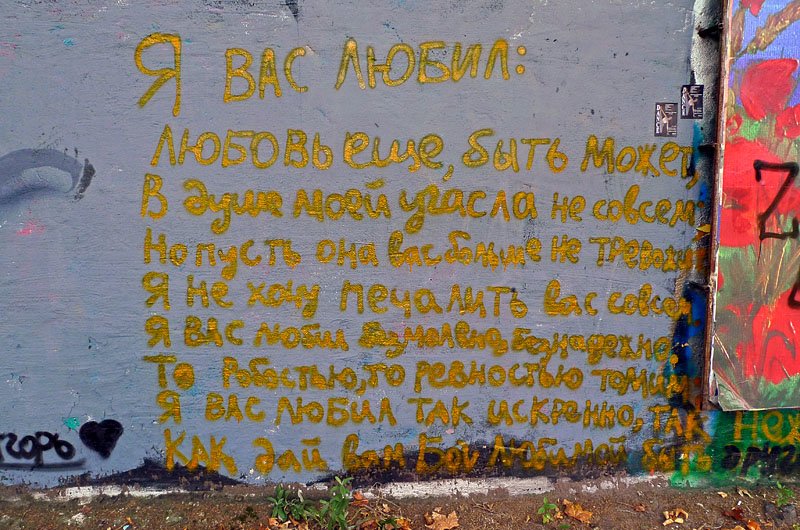 Я ВАС ЛЮБИЛ:
ЛЮБОВЬ ЕЩЕ, БЫТЬ МОЖЕТ,
В душе моей угасла не совсем
Но пусть она вас больше не тревожи
Я не хочу печалить вас совсем.
Я ВАС любил безмолвно, безнадежно,
То Робостью, то ревностью томим
Я ВАС ЛЮБИЛ ТАК искренно, ТАК неж
КАК дай вам Бог Любимой быть другим
горь